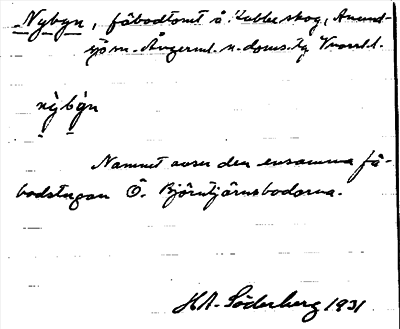 Nybyn, fäbodtomt å Kubbe skog, Anund-
sjö sn. Ångerml. n. doms.
nỳby̆n
Namnet avser den ensamma fä-
bodstugan Ö. Björntjärnsbodarna.
H A. Söderberg 1931